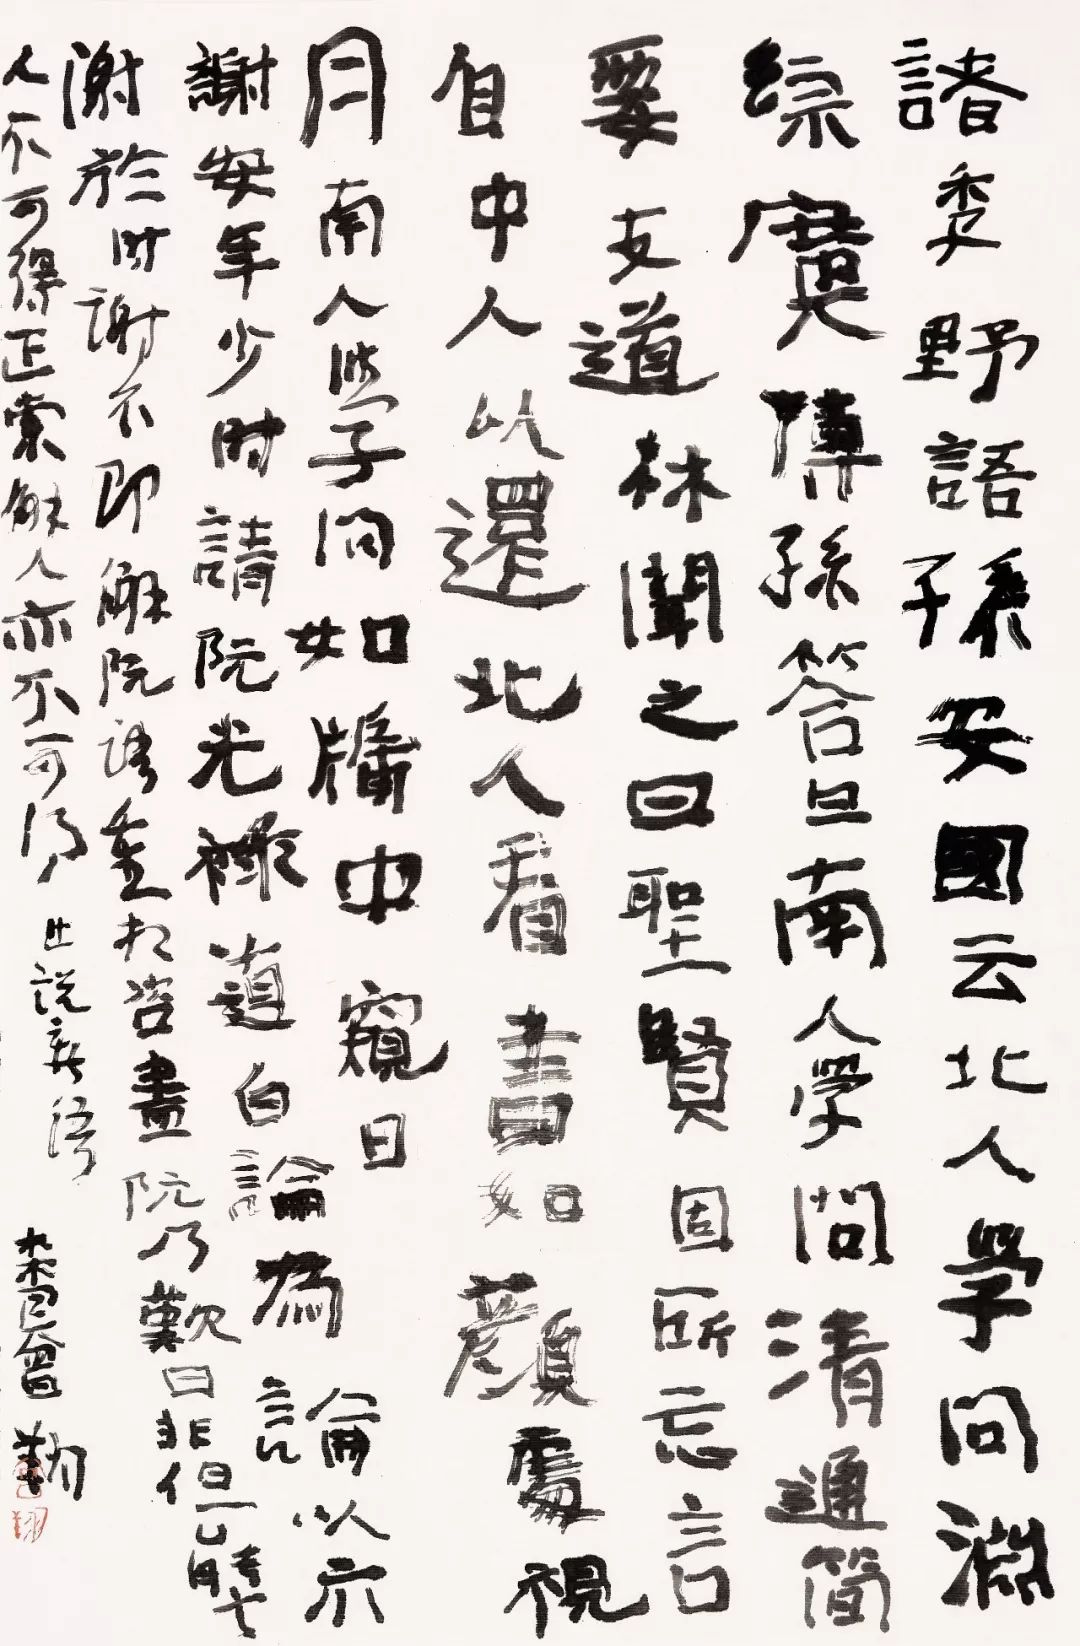 諸季野語孫安國云北人學問淵
綜廣博孫答曰南人學問清通簡
要支道林聞之曰聖賢固所忘言
自中人以還北人看書如顏處視
月南人學問如牖中窺日
謝安年少時請阮光祿道白論為論以示
謝於時謝不即解阮語重相咨盡阮乃歎曰非但
人不可得正索解人亦不可得 世說新語
曾翔